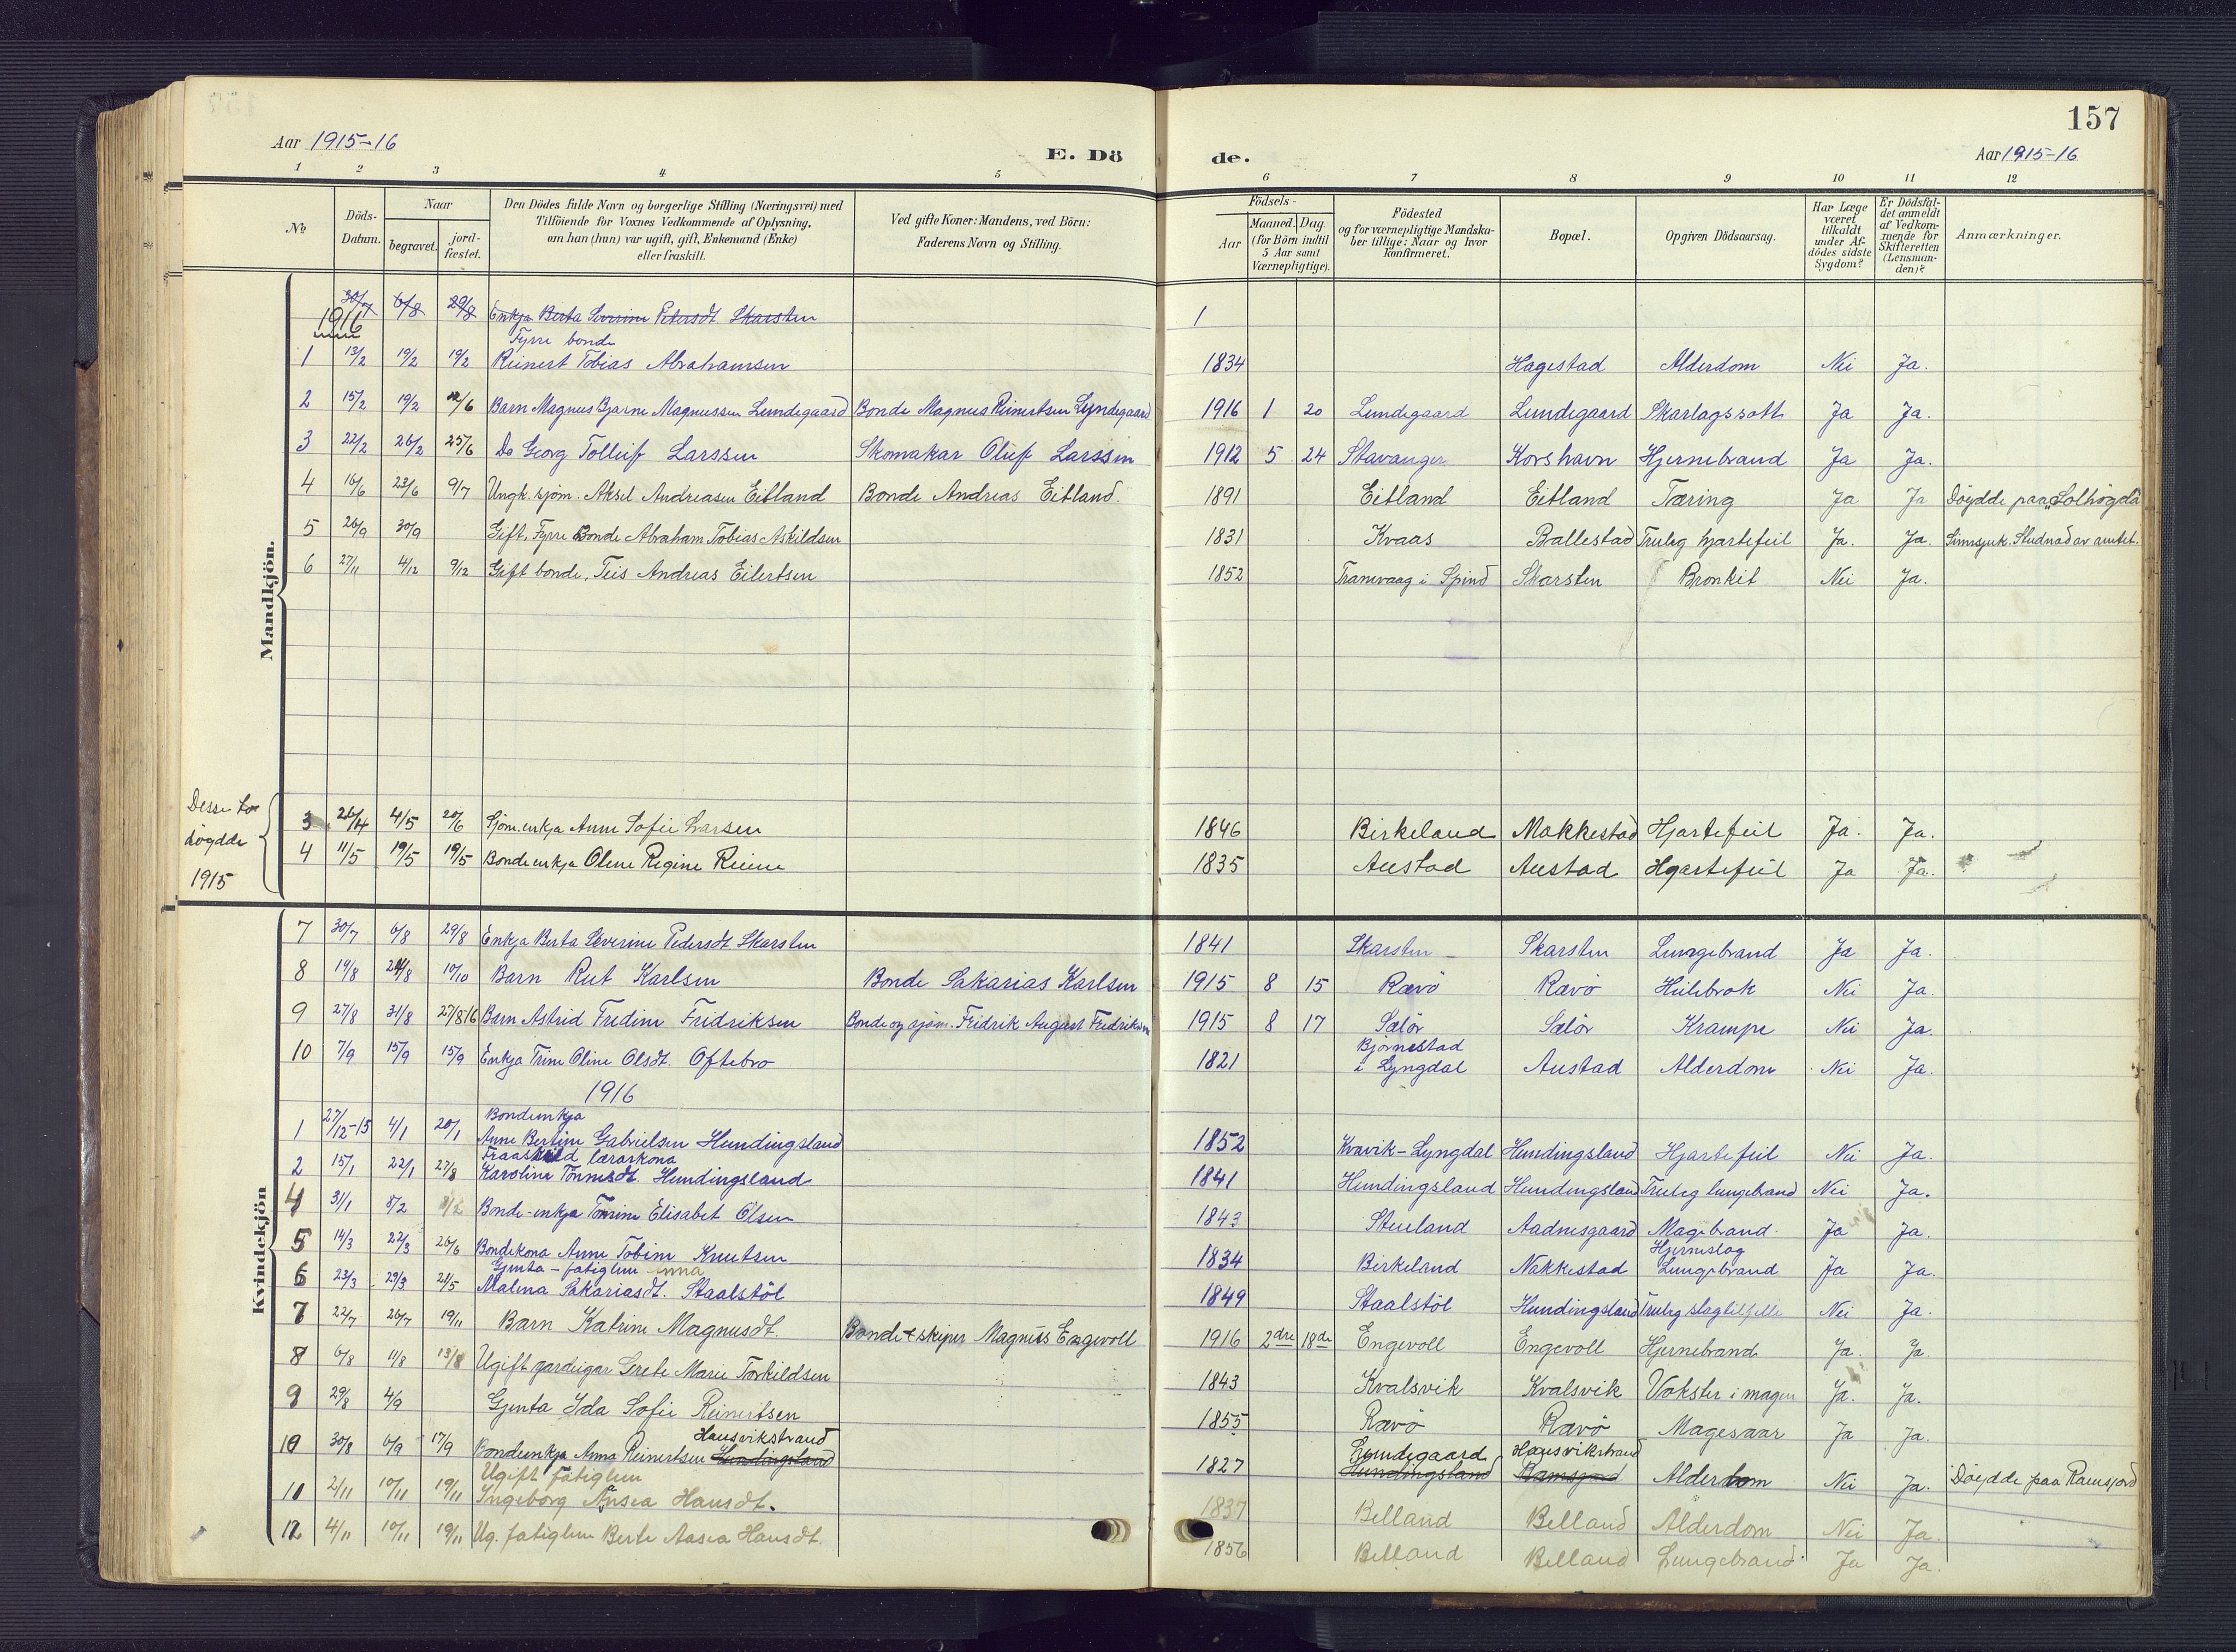 157
Aar 1915-16
E. Dö
de.
Aar 1915-16
1 2 3 4 5 6 7 8 9 10 11 12
No
Döds-Datum.
Naar
begravet.
jord-fæstet.
Den Dödes fulde Navn og borgerlige Stilling (Næringsvei) med
Tilföiende for Voxnes Vedkommende af Oplysning,
om han (hun) var ugift, gift, Enkemand (Enke)
eller fraskilt.
Ved gifte Koner: Mandens, ved Börn:
Faderens Navn og Stilling.
Födsels-
Aar
Maaned. Dag.
(for Börn indtil
5 Aar samt
Værnepligtige).
Födested
og for værnepligtige Mandska-
ber tillige: Naar og hvor
konfirmeret.
Bopæl.
Opgiven Dödsaarsag.
Har Læge
været
tilkaldt
under Af-
dödes sidste
Sygdom?
Er Dödsfal-
det anmeldt
af Vedkom-
mende for
Skifteretten
(Lensman-
den)?
Anmærkninger.
Mandkjön.
30/7 6/8 29/8 Enkja Berta Severine Petersdt. Skarsten 1
1916
Fyrre bonde
1 13/2 19/2 19/2 Reinert Tobias Abrahamsen 1834 Hagestad Alderdom Nei Ja.
2 15/2 19/2 /6 Barn Magnus Bjarne Magnussen Lundegaard Bonde Magnus Reinertsen Lyndegaard 1916 1 20 Lundegaard Lundegaard Skarlagssott Ja Ja.
3 22/2 26/2 25/6 Do Georg Tolleif Larssen Skomakar Oluf Larssen 1912 5 24 Stavanger Korshavn Hjernebrand Ja Ja.
4 16/6 23/6 9/7 Ungk. sjöm. Aksel Andreasen Eitland Bonde Andreas Eitland. 1891 Eitland Eitland Tæring Ja Ja Döydde paa "Solhögda
5 26/9 30/9 Gift. Fyrre Bonde Abraham Tobias Askildsen 1831 Kvaas Ballestad Truleg hjartefeil Ja. Ja. Sinnsjuk. Studnad av amtet.
6 27/11 4/12 9/12 Gift bonde, Teis Andreas Eilertsen 1852 Tranevaag i Spind Skarsten Bronkit Nei Ja.
Desse to
döydde
1915
3 26/4 4/5 20/6 Sjöm.enkja Anne Sofie Larsen 1846 Birkeland Nakkestad Hjartefeil Ja. Ja.
4 11/5 19/5 19/5 Bondeenkja Olene Regine Reime 1835 Austad Austad Hjartefeil Ja Ja.
Kvindekjön
7 30/7 6/8 29/8 Enkja Berta Severine Pedersdt. Skarsten 1841 Skarsten Skarsten Lungebrand Ja Ja.
8 19/8 24/8 10/10 Barn Rut Karlsen Bonde Sakarias Karlsen 1915 8 15 Rævö Rævö Heilebrok Nei Ja.
9 27/8 31/8 27/8 16 Barn Astrid Fredine Fridriksen Bonde og sjöm. Fridrik August Fredriksen 1915 8 17 Sælör Sælör Krampe Nei Ja.
10 7/9 15/9 15/9 Enkja Trine Oline Olsdt. Oftebro 1821 Björnestad
i Lyngdal Austad Alderdom Nei Ja.
1916
Bondeenkja
1 27/12-15 4/1 20/1 Anne Bertine Gabrielsen Hundingsland 1852 Kvavik-Lyngdal Hundingsland Hjartefeil Nei Ja.
Fraaskild lærarkona
2 15/1 22/1 27/8 Karoline Tønnesdt. Hundingsland 1841 Hundingsland Hundingsland Truleg lungebrand Nei Ja.
4 31/1 8/2 8/2 Bonde-enkja Tomine Elisabet Olsen 1843 Steeland Aadnesgaard Magebrand. Ja Ja.
5 14/3 22/3 26/6 Bondekona Anne Tobine Knutsen 1834 Birkeland Nakkestad Hjerneslag
Lungebrand Ja Ja.
Gjenta - fatiglem Anna
6 23/3 29/3 21/5 Malena Sakariasdt. Staalstöl 1849 Staalstöl Hundingsland Truleg slagtilfelle Nei Ja.
7 22/7 26/7 19/11 Barn Katrine Magnusdt. Bonde + skiper Magnus Engevoll 1916 2dre 18de Engevoll Engevoll Hjernebrand Ja. Ja.
8 6/8 11/8 13/8 Ugift gardeigar Grete Marie Torkildsen 1843 Kvalsvik Kvalsvik Vokster i magen Ja. Ja.
9 29/8 4/9 Gjenta Ida Sofie Reinertsen 1855 Rævö Rævö Magesaar Ja Ja.
Hausvikstrand
10 30/8 6/9 17/9 Bondeenkja Anna Reinertsen Hundingsland 1827 Lyundegaard
Hundingsland Hausvikstrand
Ramsjord Alderdom Nei Ja. Döydde paa Ramsjord
Ugift fatiglem
11 2/11 10/11 19/11 Ingeborg Ansea Hansdt. 1837 Belland Belland Alderdom Nei Ja.
12 4/11 10/11 19/11 Ug. fatiglem Berte Aasea Hansdt. 1856 Belland Belland Lungebrand Ja Ja.